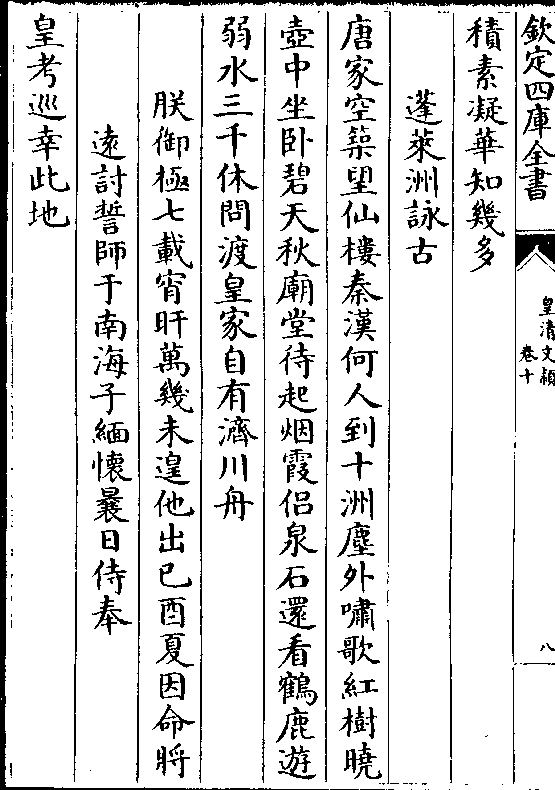 欽定四庫全書
皇清文穎
卷十
八
積素凝華知幾多
蓬萊洲詠古
唐家空築望仙樓秦漢何人到十洲塵外嘯歌紅樹曉
壺中坐卧碧天秋廟堂待起烟霞侣泉石還看鶴鹿遊
弱水三千休問渡皇家自有濟川舟
朕御極七載宵旰萬幾未遑他出己酉夏因命將
遠討誓師于南海子緬懷曩日侍奉
皇考巡幸此地